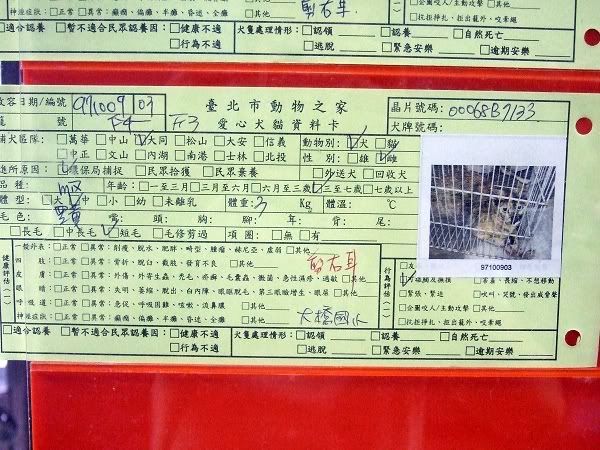 神經症狀：□正常 □異常：癲癇、偏癱、半癱、昏迷、全癱 □其他 剪右耳
□抗拒掙扎、拒出籠外、咬牽繩
□適合認養 □暫不適合民眾認養因：□健康不適 犬隻處理情形：□認領 □認養 □自然死亡
□行為不適 □逃脫 □緊急安樂 □逾期安樂
收容日期/編號 971009 03 臺北市動物之家 晶片號碼：00068B7133
號 F4 F3 愛心犬貓資料卡 犬牌號碼：
捕犬區隊：□萬華 □中山 ☑大同 □松山 □大安 □信義 動物別：☑犬 □貓
□中正 □文山 □內湖 □南港 □士林 □北投 性別：□雄 ☑雌
進所原因：☑環保局捕捉 □民眾拾獲 □民眾棄養 □外送犬 □回收犬
品種：mix 年齡：□一至三月 □三月至六月 □六月至三歲 ☑三至七歲 □七歲以上
體型：□大 ☑中 □小 □未離乳 體重：3 Kg 體溫：℃
毛色： 嘴： 頭： 胸： 腳： 年： 背： 尾：
□長毛 □中長毛 ☑短毛 □毛修剪過 項圈：□無 □有
97100903
健康評估(一)
一般外表：□正常 □異常：削瘦、脫水、肥胖、畸型、腫瘤、赫尼亞、虛弱 □其他
四肢：□正常 □異常：骨折、脫臼、截肢、發育不良 □其他 剪右耳
□正常 □異常：外傷、外寄生蟲、禿毛、疥癬、毛囊蟲、黴菌、急性濕疹、過敏 □其他
眼：□正常 □異常：失明、萎縮、脫出、白內障、眼瞼脫毛、第三眼瞼增生、眼屎 □其他
呼吸道：□正常 □異常：急促、呼吸困難、咳嗽、流鼻膿 □其他
神經症狀：□正常 □異常：癲癇、偏癱、半癱、昏迷、全癱 □其他 大橋國小
行為評估(一)
□害羞、長縮、不想移動
□緊張、緊迫 □吠叫、哭號、發出威脅聲
□企圖咬人/主動攻擊 □其他
□抗拒掙扎、拒出籠外、咬牽繩
□適合認養 □暫不適合民眾認養因：□健康不適 犬隻處理情形：□認領 □認養 □自然死亡
□行為不適 □逃脫 □緊急安樂 □逾期安樂